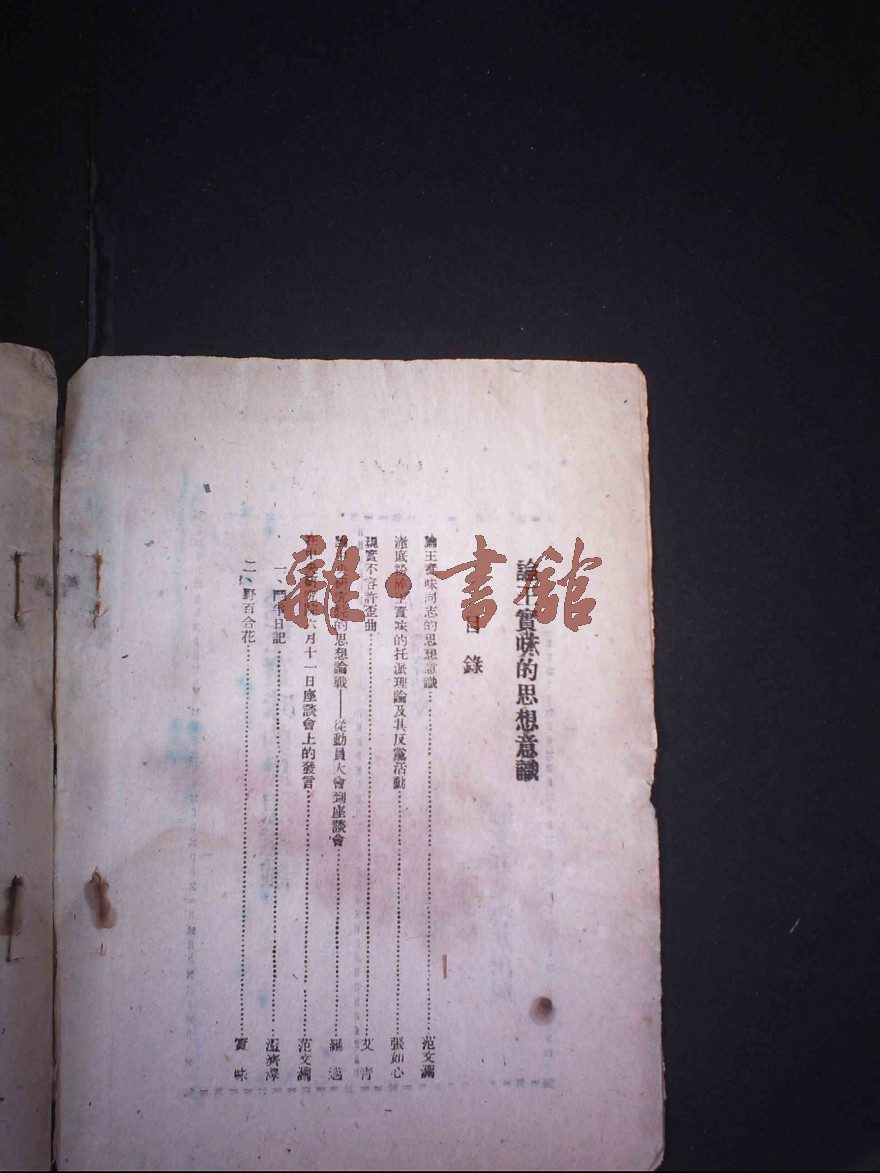 論王實味的思想意識
目錄
論王實味同志的思想意識……范文瀾
澈底粉碎王實味的托派理論及其反黨活動……張如心
現實不容許歪曲……艾青
論中央研究院的思想論戰——從動員大會到座談會……羅邁
在中央研究院六月十一日座談會上的發言……范文瀾
一、鬥爭日記……溫濟澤
二、野百合花……實味
雜·書館